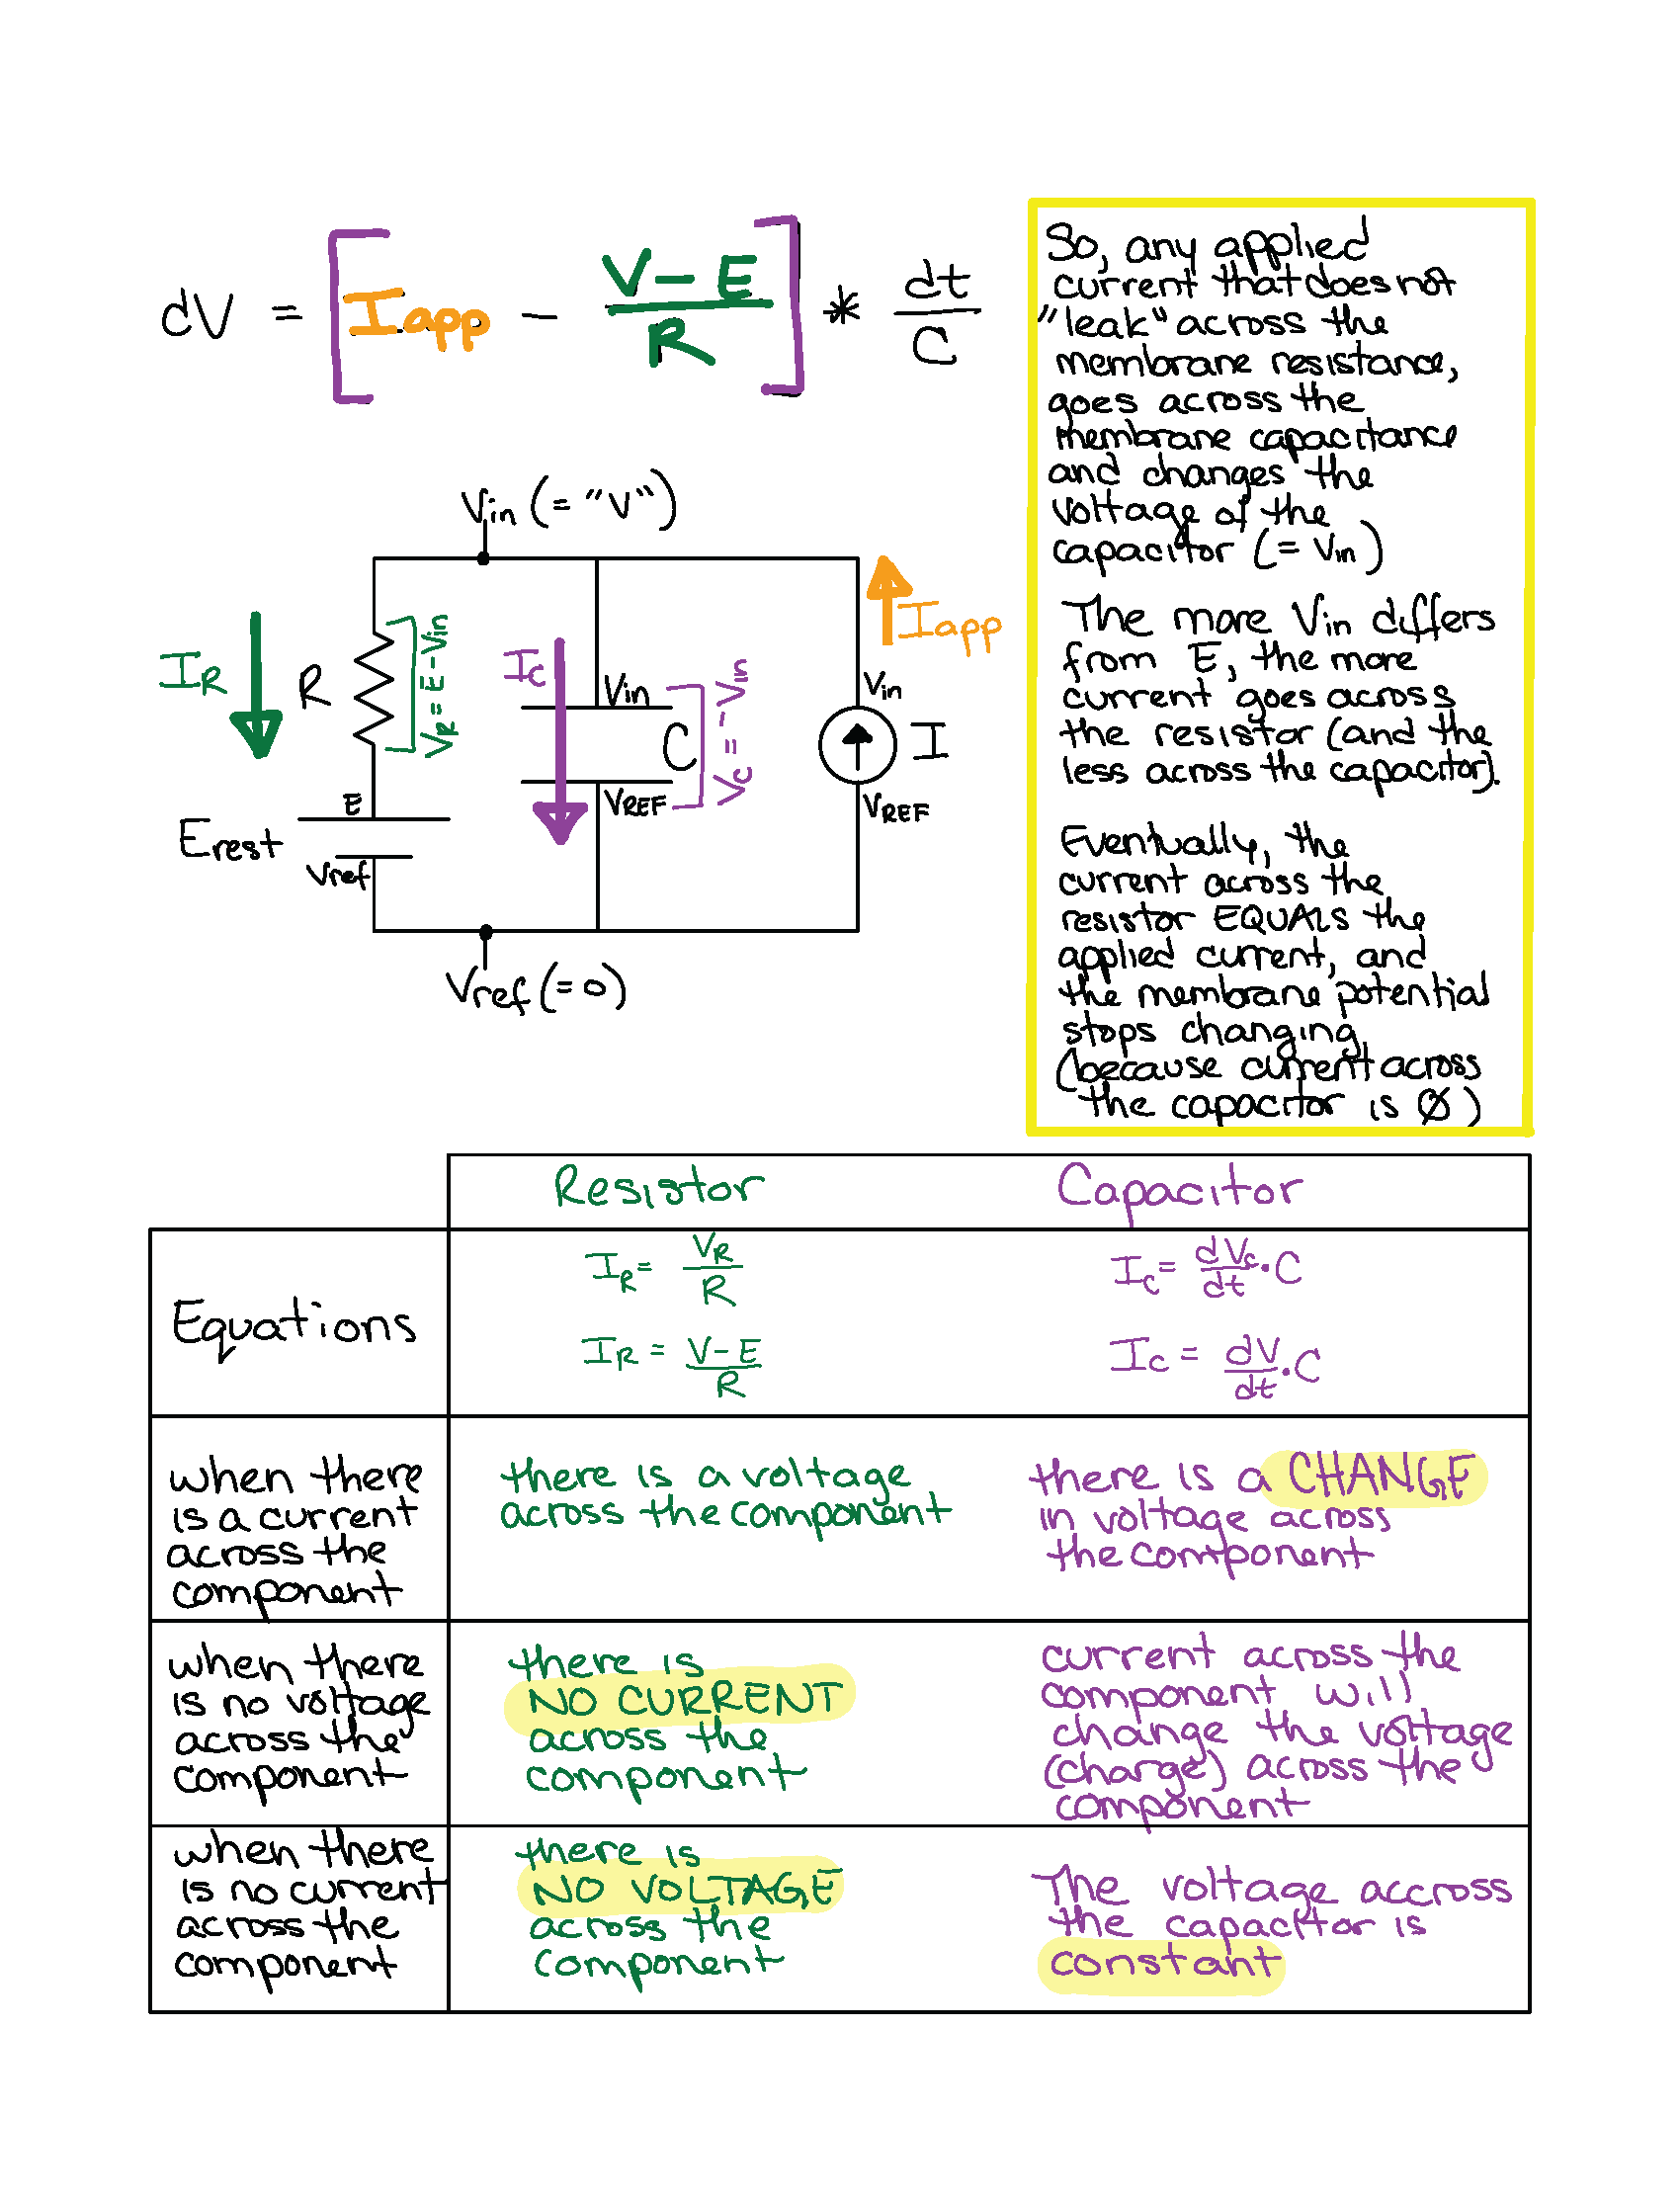 dV = [ Iapp - V-E/R ] * dt/C
So, any applied
current that does not
"leak" across the
membrane resistance,
goes across the
membrane capacitance
and changes the
voltage of the
capacitor (= Vin)
The more Vin differs
from E, the more
current goes across
the resistor (and the
less across the capacitor).
Eventually, the
current across the
resistor EQUALS the
applied current, and
the membrane potential
stops changing
(because current across
the capacitor is Ø)
Vin (= "V")
IR
R
VR = E - Vin
E
Erest
Vref
IC
Vin
C
VREF
VC = - Vin
Iapp
Vin
I
VREF
Vref (= 0)
Resistor
Capacitor
Equations
IR = VR/R
IR = V-E/R
IC = dVc/dt · C
IC = dV/dt · C
when there
is a current
across the
component
there is a voltage
across the component
there is a CHANGE
in voltage across
the component
when there
is no voltage
across the
component
there is
NO CURRENT
across the
component
current across the
component will
change the voltage
(charge) across the
component
when there
is no current
across the
component
there is
NO VOLTAGE
across the
component
The voltage accross
the capacitor is
constant